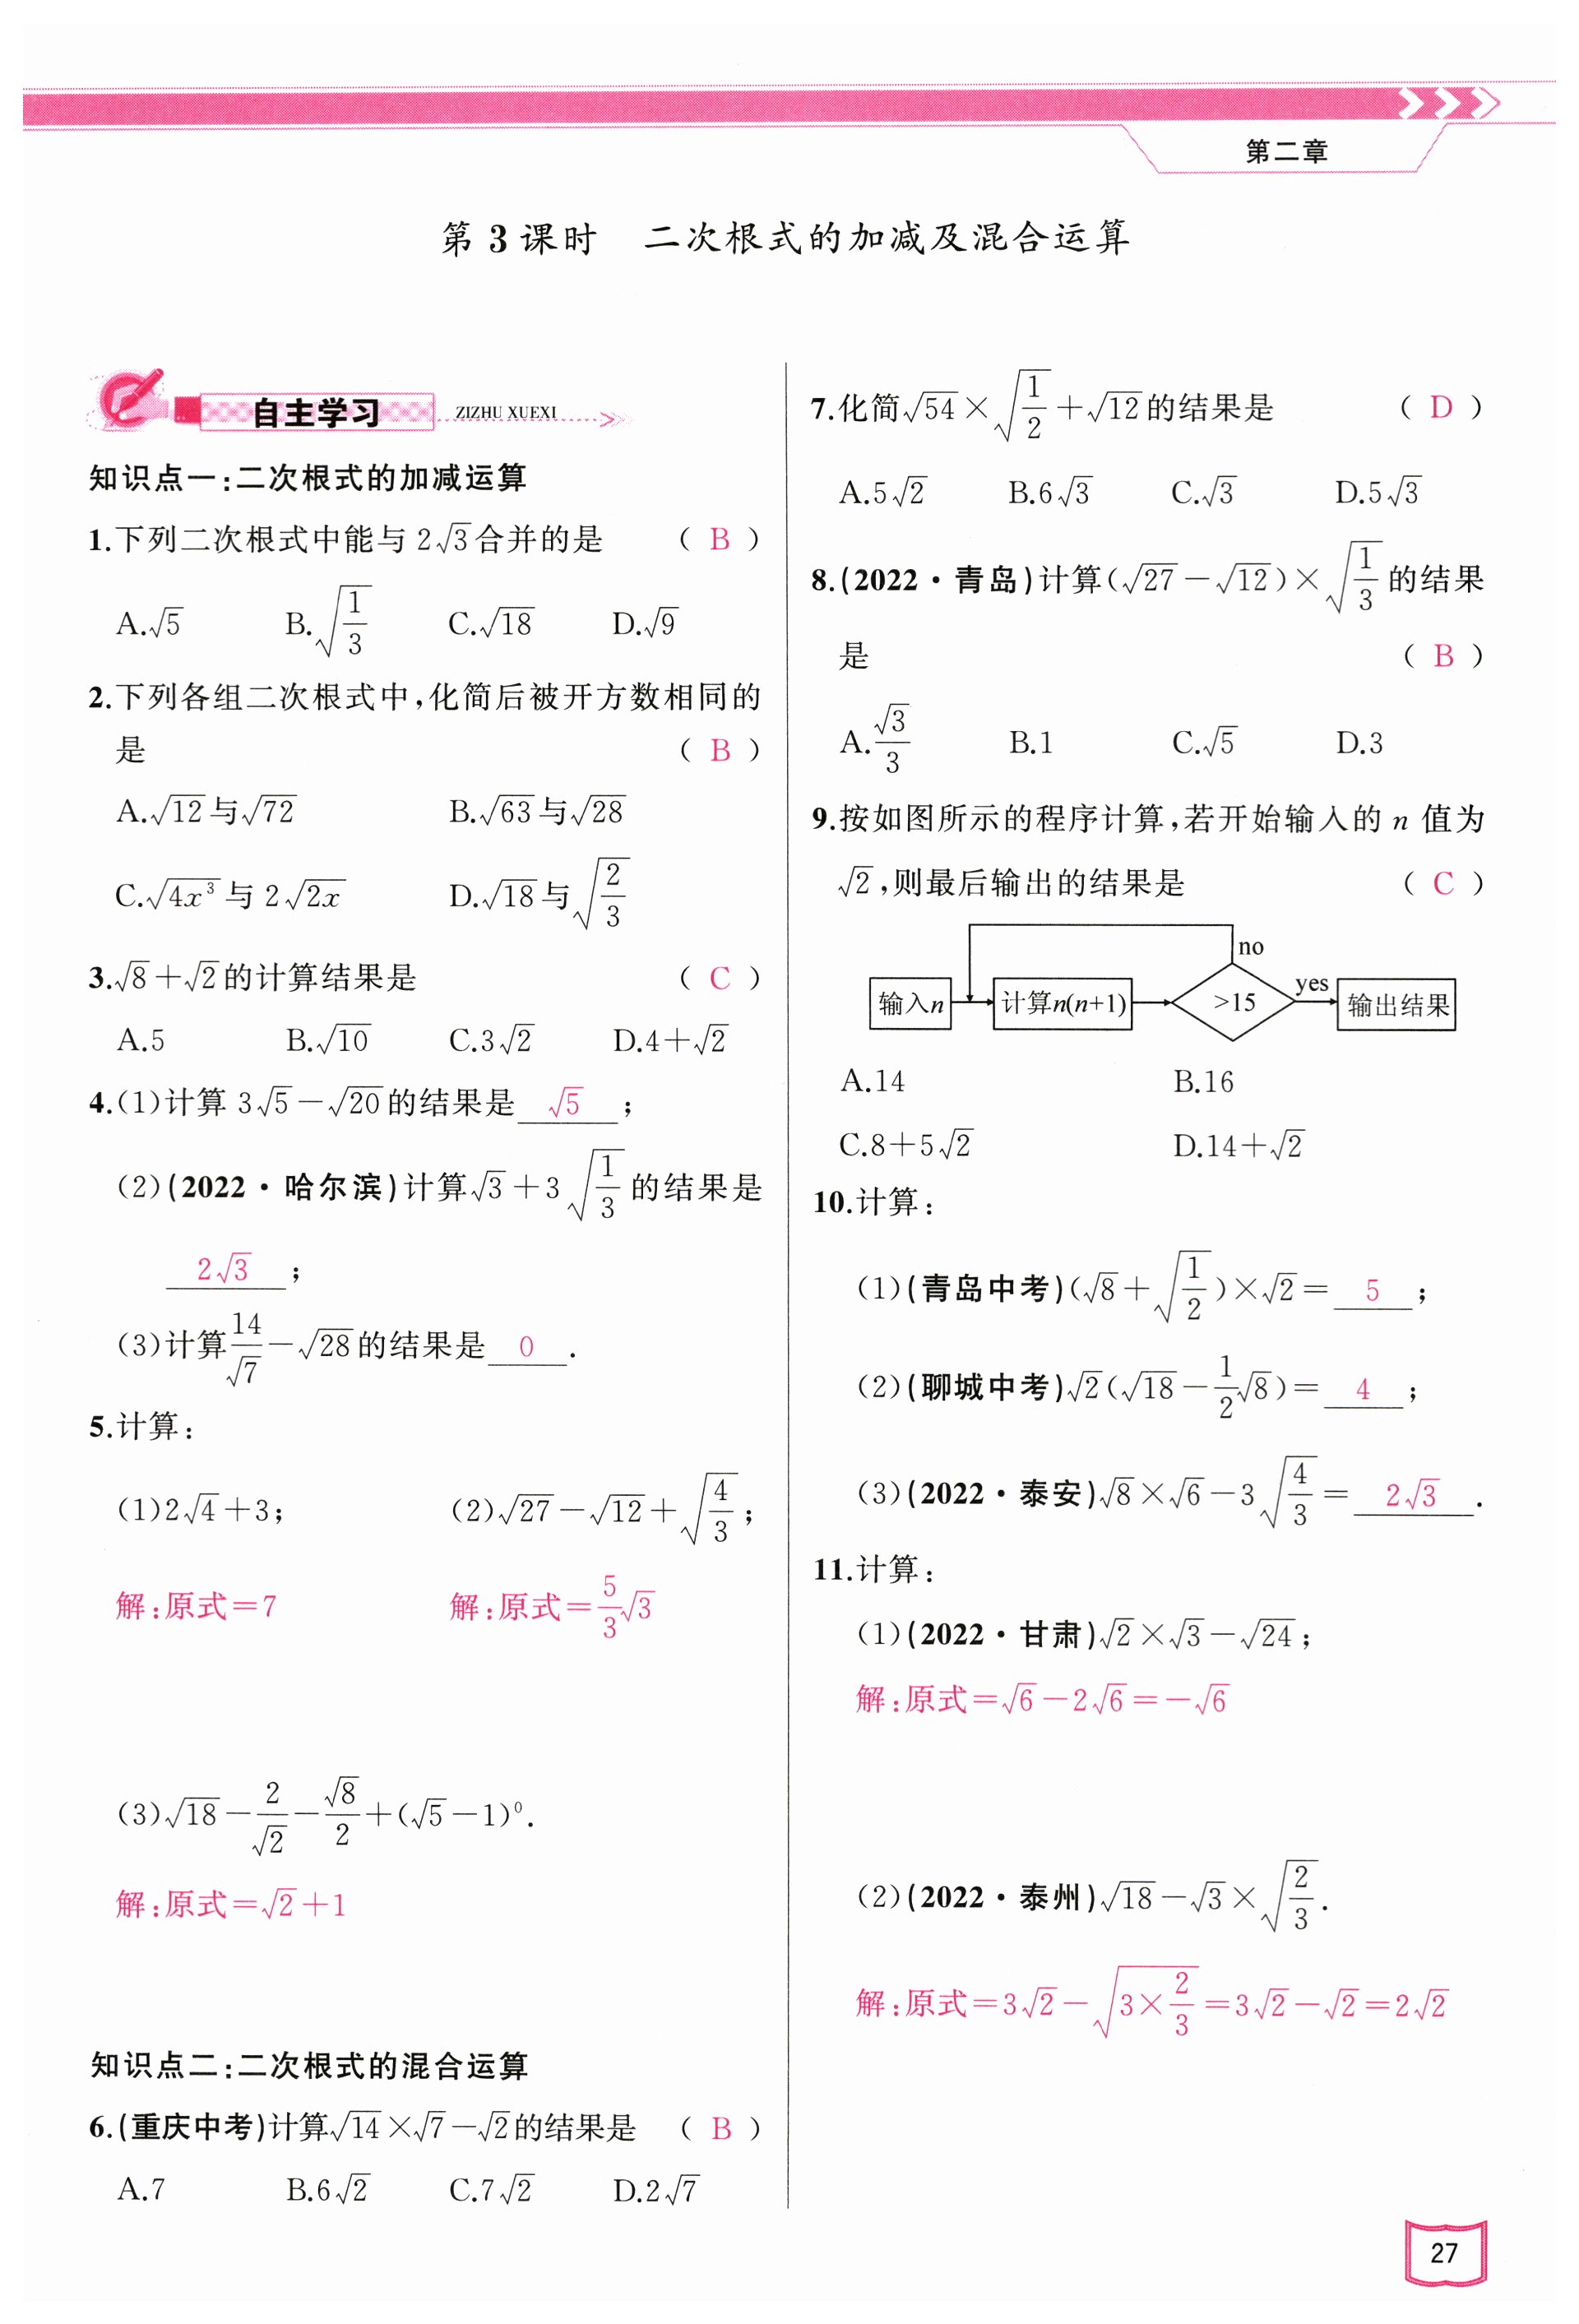 第二章
第 3 课时　二次根式的加减及混合运算
自主学习 ZIZHU XUEXI
知识点一:二次根式的加减运算
1.下列二次根式中能与 2√3合并的是 ( B )
A.√5 B.√(1/3) C.√18 D.√9
2.下列各组二次根式中,化简后被开方数相同的
是 ( B )
A.√12与√72 B.√63与√28
C.√(4x³)与 2√(2x) D.√18与√(2/3)
3.√8+√2的计算结果是 ( C )
A.5 B.√10 C.3√2 D.4+√2
4.(1)计算 3√5-√20的结果是 √5 ;
(2)(2022·哈尔滨)计算√3+3√(1/3)的结果是
2√3 ;
(3)计算14/√7-√28的结果是 0 .
5.计算:
(1)2√4+3; (2)√27-√12+√(4/3);
解:原式=7 解:原式=5/3√3
(3)√18-2/√2-√8/2+(√5-1)⁰.
解:原式=√2+1
知识点二:二次根式的混合运算
6.(重庆中考)计算√14×√7-√2的结果是 ( B )
A.7 B.6√2 C.7√2 D.2√7
7.化简√54×√(1/2)+√12的结果是 ( D )
A.5√2 B.6√3 C.√3 D.5√3
8.(2022·青岛)计算(√27-√12)×√(1/3)的结果
是 ( B )
A.√3/3 B.1 C.√5 D.3
9.按如图所示的程序计算,若开始输入的 n 值为
√2,则最后输出的结果是 ( C )
no
输入n 计算n(n+1) >15 yes 输出结果
A.14 B.16
C.8+5√2 D.14+√2
10.计算:
(1)(青岛中考)(√8+√(1/2))×√2= 5 ;
(2)(聊城中考)√2(√18-1/2√8)= 4 ;
(3)(2022·泰安)√8×√6-3√(4/3)= 2√3 .
11.计算:
(1)(2022·甘肃)√2×√3-√24;
解:原式=√6-2√6=-√6
(2)(2022·泰州)√18-√3×√(2/3).
解:原式=3√2-√(3×2/3)=3√2-√2=2√2
27